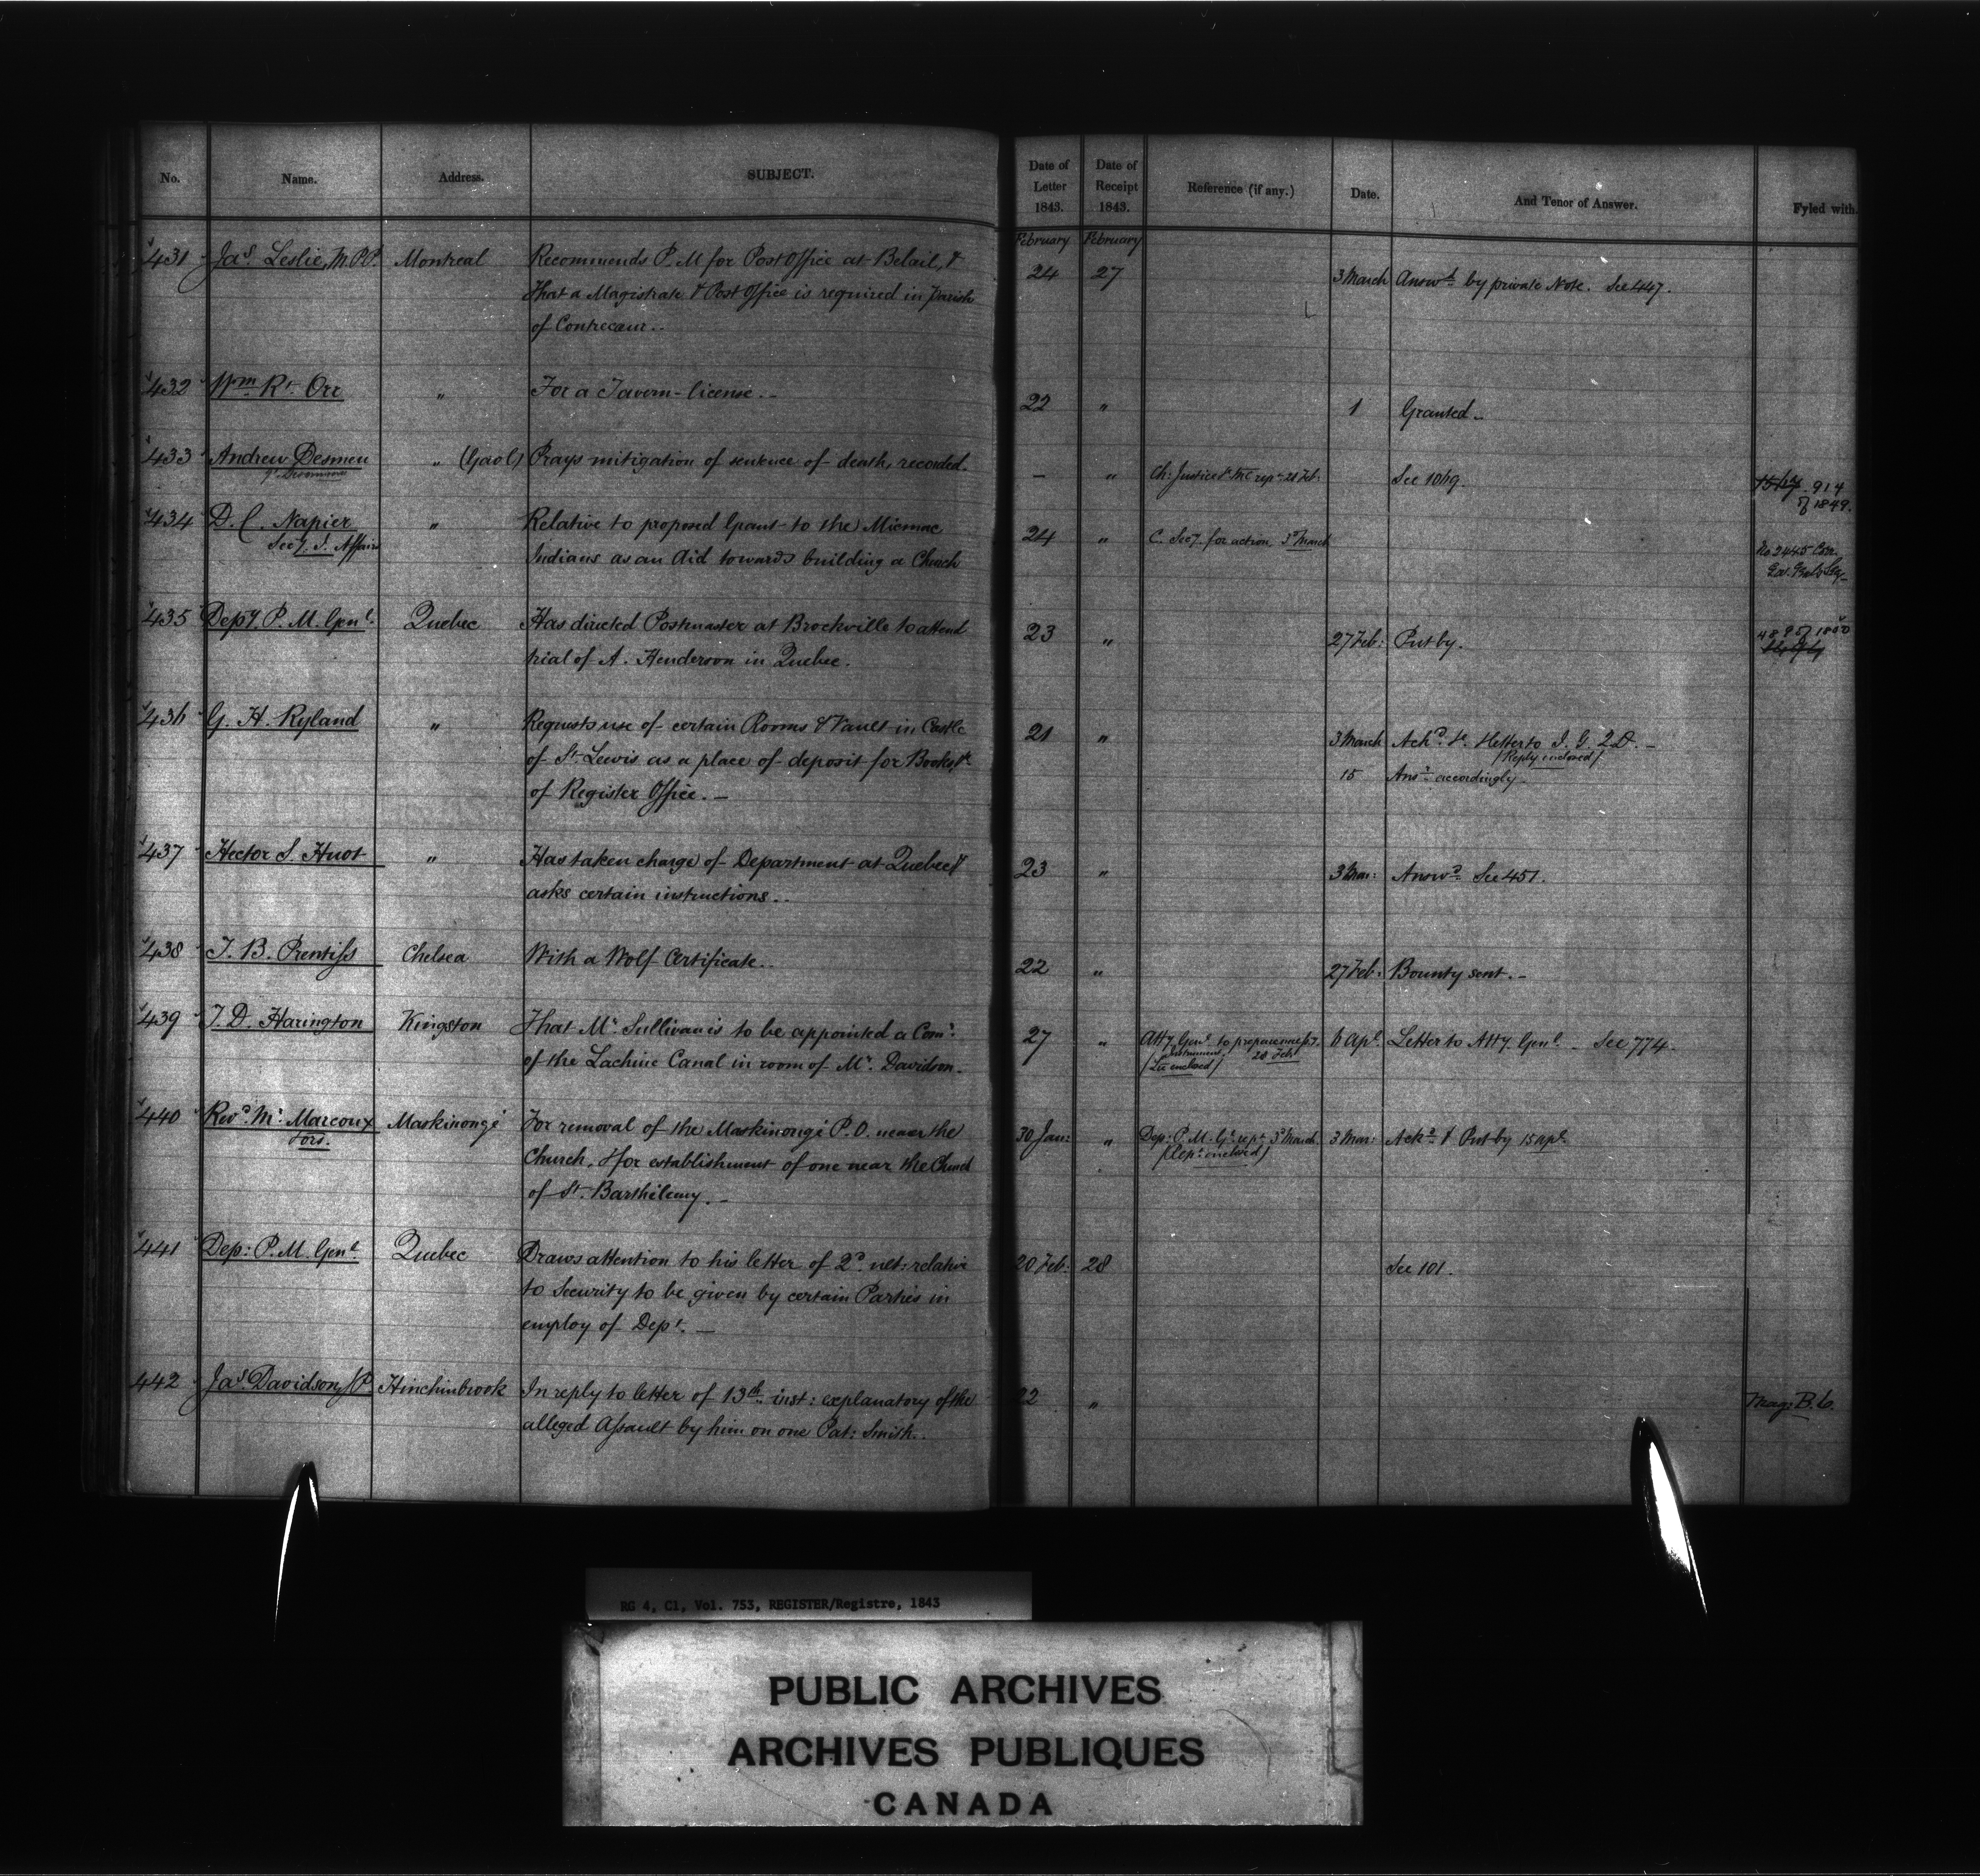 No. Name. Address. SUBJECT. Date of Letter 1843. Date of Receipt 1843. Reference (if any.) Date. And Tenor of Answer. Fyled with.
February February
431 Jas. Leslie, M.P.P. Montreal Recommends P. M for Post Office at Belail, & 24 27 3 March Answd. by private Note. See 447.
that a Magistrate & Post Office is required in Parish
of Contrecœur..
432 Wm. Rt. Orr " For a Tavern-license.- 22 " 1 Granted-
433 Andrew Desmeu " (Gaol) Prays mitigation of sentence of death, recorded. - " Ch: Justice See 1069. 914
of 1849.
434 D. C. Napier " Relative to proposed Grant to the Micmac 24 " C. Secy. for action, 3d March No 2445 Con.
Secy. I. Affairs Indians as an Aid towards building a Church
435 Depy. P. M. Genl. Quebec Has directed Postmaster at Brockville to attend 23 " 27 Feb: Put by. 489 of 1850
trial of A. Henderson in Quebec.
436 G. H. Ryland " Requests use of certain Rooms & Vault in Castle 21 " 3 March Ackd. &
(Reply inclosed)
of St. Lewis as a place of deposit for Books, &c 15 Ansd. accordingly-
of Register Office.-
437 Hector S. Huot " Has taken charge of Department at Quebec & 23 " 3 Mar: Answd. See 451.
asks certain instructions..
438 J. B. Prentiss Chelsea With a Wolf Certificate.. 22 " 27 Feb: Bounty sent.-
439 J. D. Harington Kingston That Mr. Sullivan is to be appointed a Comr. 27 " Atty. Genl. to prepare necessy. 6 Apl. Letter to Atty. Genl. - See 774.
Instrument. 28 Feb
of the Lachine Canal in room of Mr. Davidson.
440 Revd. Mr. Marcoux Maskinongé For removal of the Maskinongé P.O. nearer the 30 Jan: " Dep: P. M. Gl. rept. 3d March. 3 Mar: Ackd. & Put by 15 Apl.
(Rept. enclosed)
Church, & for establishment of one near the Church
of St. Barthélemy.-
441 Dep: P. M. Genl. Quebec Draws attention to his letter of 2d. ult: relative 20 Feb: 28 See 101.
to Security to be given by certain Parties in
employ of Dept.-
442 Jas. Davidson, JP Hinchinbrook In reply to letter of 13th. inst: explanatory of the 22 " Mag: B. 6.
alleged Assault by him on one Pat: Smith..
RG 4, C1, Vol. 753, REGISTER/Registre, 1843
PUBLIC ARCHIVES
ARCHIVES PUBLIQUES
CANADA